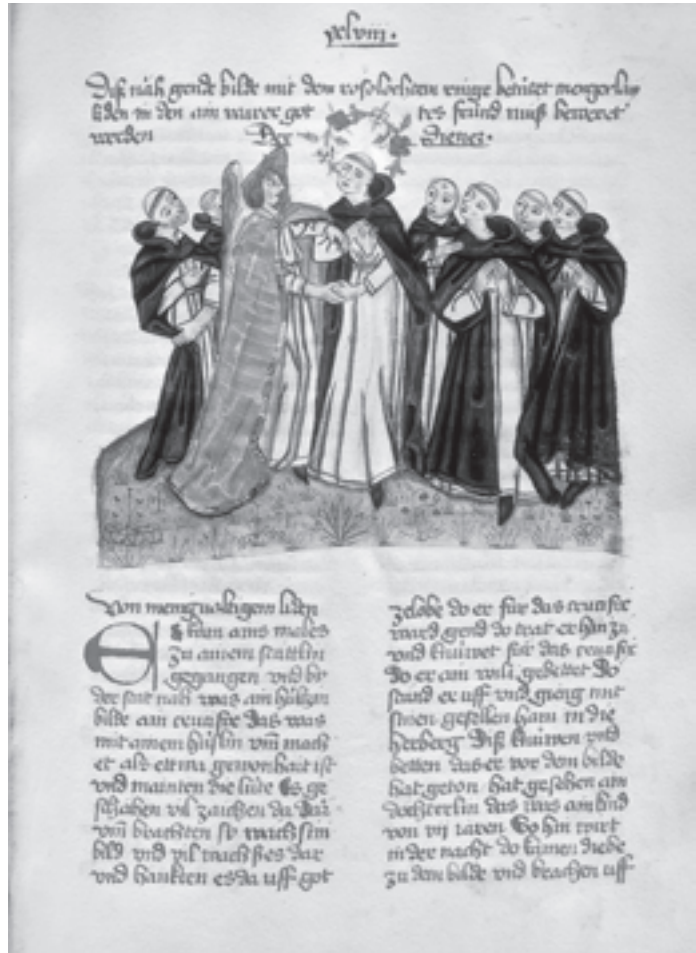 Diß nach gende bilde mit dem rosolochtem ringe betütet mengerlay
liden in den ain warer got tes fründ muß beweret
werden Der Diener.
Von mengualtigem liden
Es kam ains males
zu ainem stettlin
gegangen vnd bi
der stat nach was ain hülzin
bilde ain crucifix das was
mit ainem hüslin vm mach
et als ettwa gewonhait ist
vnd mainten die lüte Es ge
schahen vil zaichen da dar
vm brachten sy wachsin
bild vnd vil wachßes dar
vnd hankten es da uff got
zelobe do er für das crucifix
ward gend do trat er hin zu
vnd knüwet für das crucifix
do er ain wili gebettet do
stund er uff vnd gieng mit
sinen gesellen haim in die
herberg Diß knüwen vnd
betten das er vor dem bilde
hat geton hat gesehen ain
dochterlin das was ain kind
von vij iaren So hin wirt
in der nacht do kamen diebe
zu dem bilde vnd brachen uff